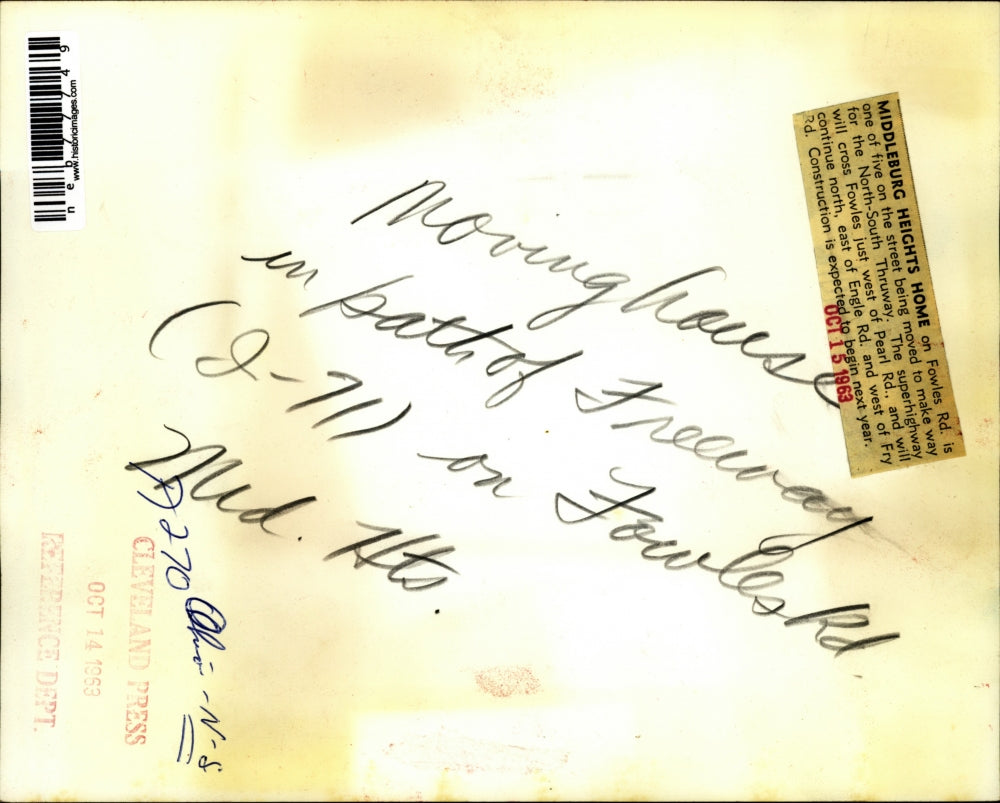 MIDDLEBURG HEIGHTS HOME on Fowles Rd. is
one of five on the street being moved to make way
for the North-South Thruway. The superhighway
will cross Fowles just west of Pearl Rd., and will
continue north, east of Engle Rd. and west of Fry
Rd. Construction is expected to begin next year.
OCT 15 1963
Moving house
in path of Freeway
(I-71) on Fowles Rd
Mid. Hts.
270 Ohio - N-S
CLEVELAND PRESS
OCT 14 1963
REFERENCE DEPT.
neb77749
www.historicimages.com